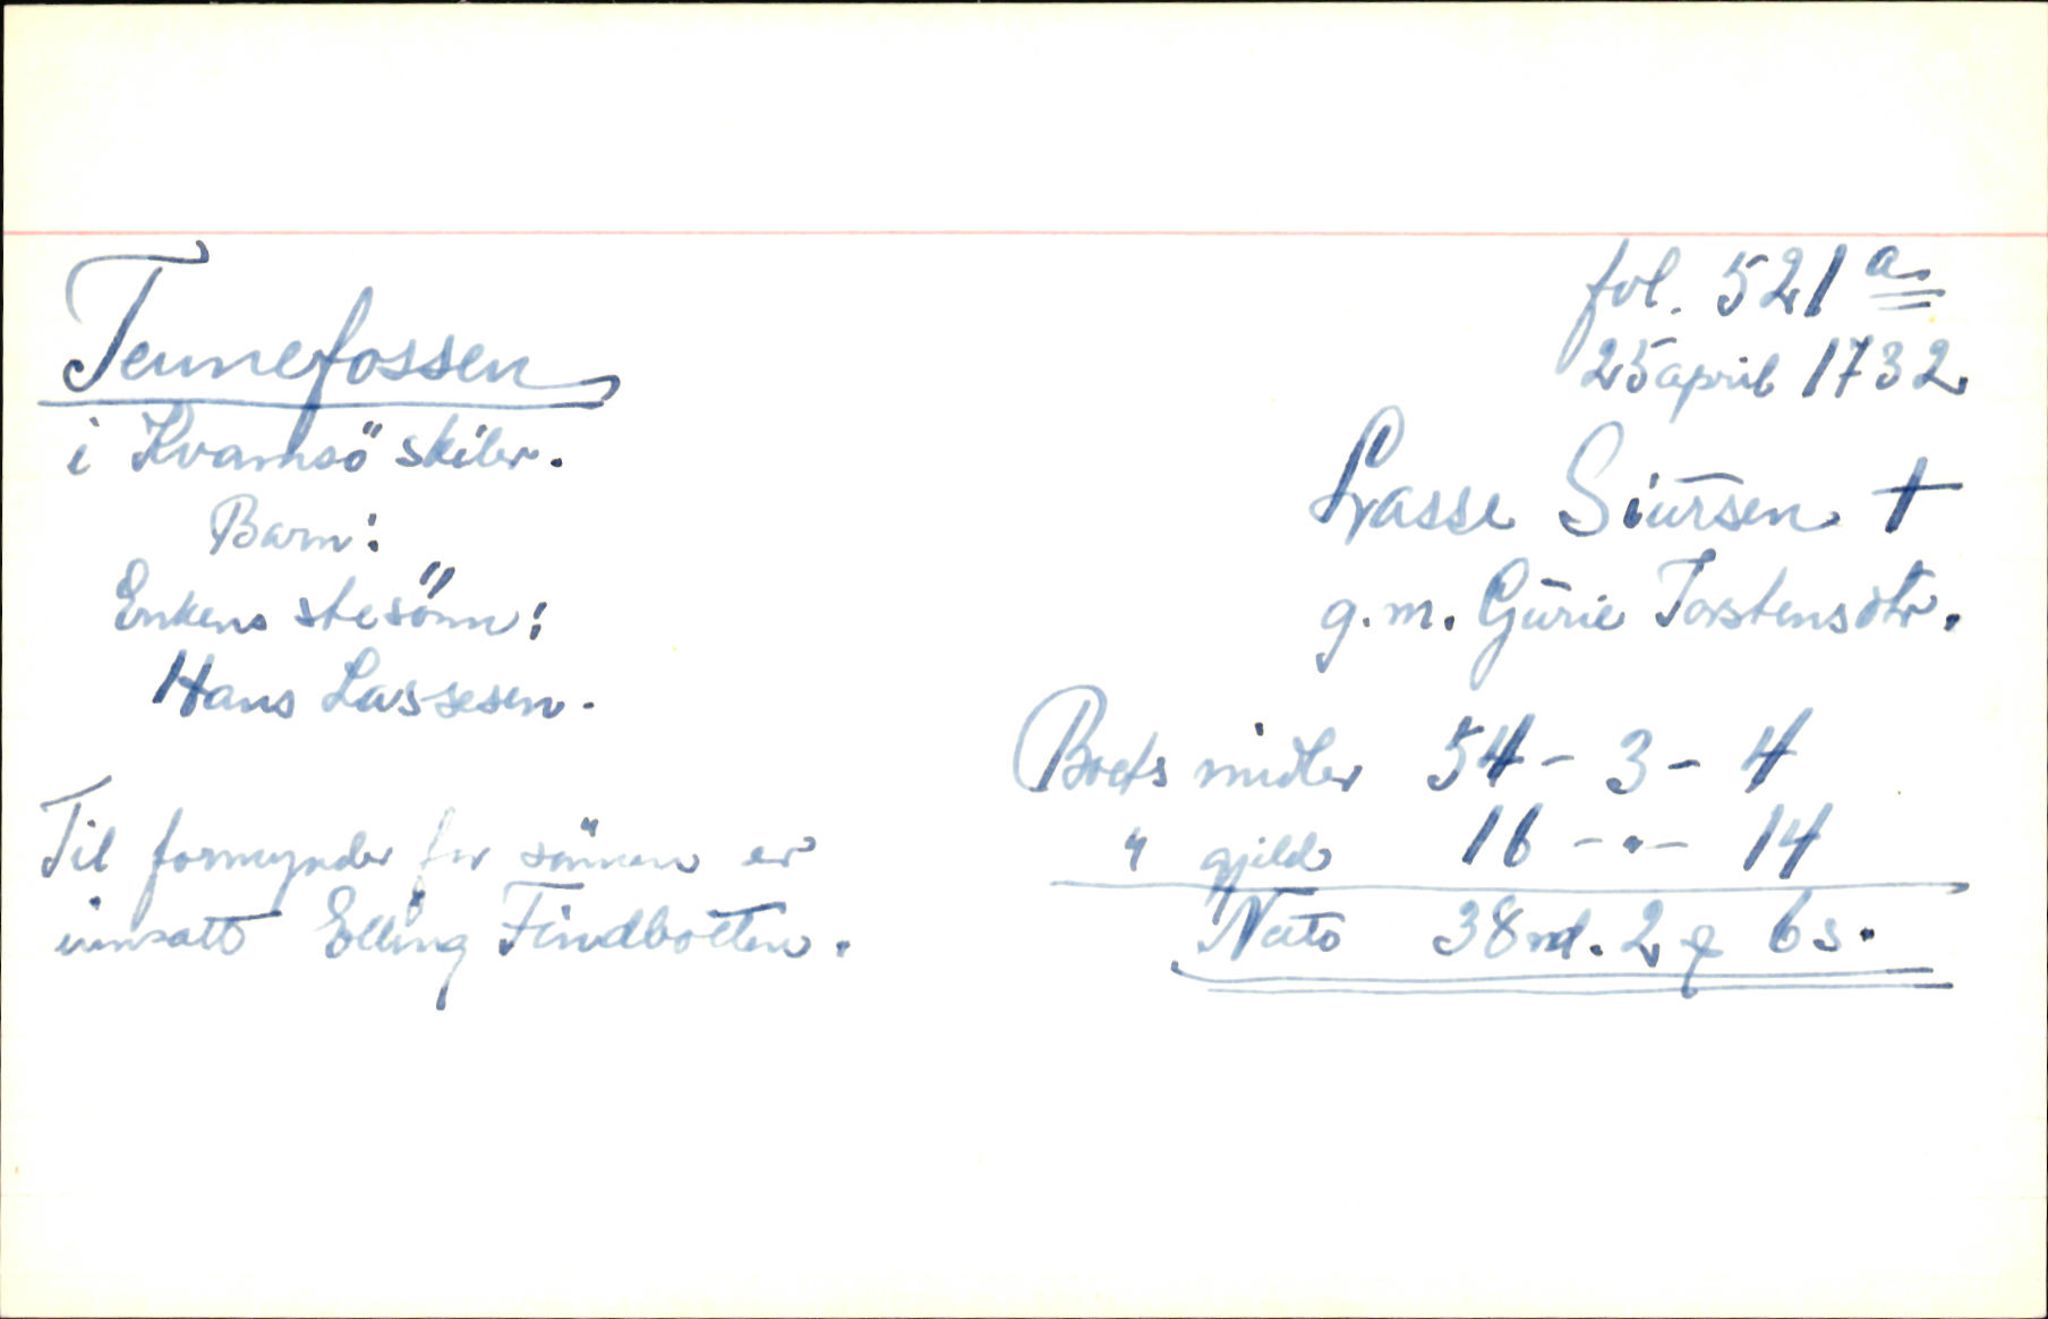 fol. 521 a.
Tennefossen
25 april 1732
i Kvamsö skibr.
Lasse Siursen †
Barn:
g.m. Gurie Torstensdtr.
Enkens stesönn:
Hans Lassesen.
Boets midler 54 - 3 - 4
" gjeld 16 - " - 14
Netto 38 rd. 2 ƶ 6 s.
Til formynder for sönnen er
innsatt Elling Findbotten.